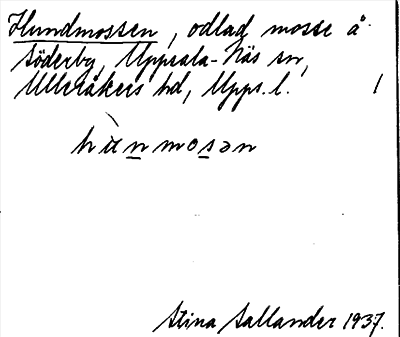 Hundmossen, odlad mosse å
Söderby, Uppsala-Näs sn,
Ulleråkers hd, Upps. l. /
hu̇nmosən
Stina Sallander 1937.